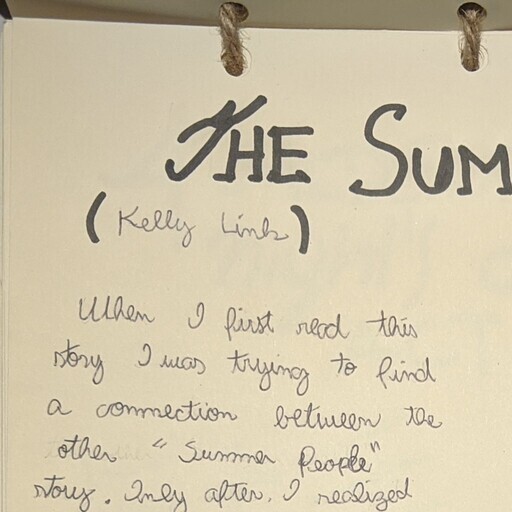 THE SUM
(Kelly Link)
When I first read this
story I was trying to find
a connection between the
other "Summer People"
story. Only after, I realized